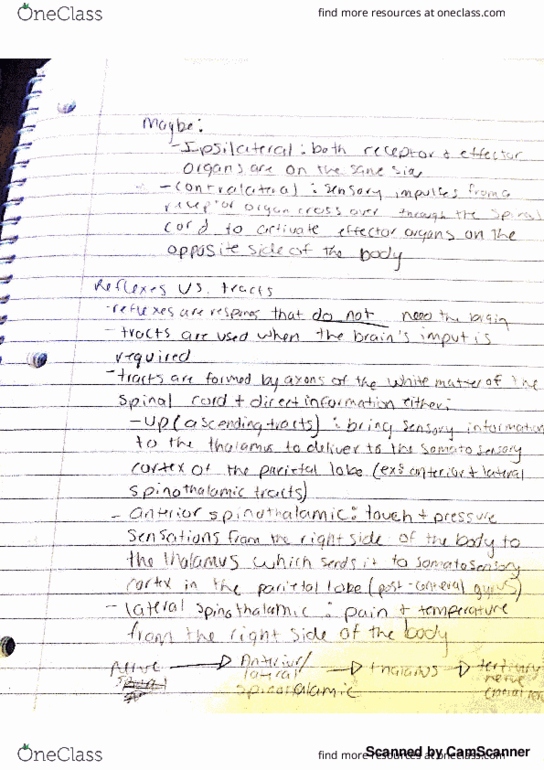 OneClass
find more resources at oneclass.com
Maybe:
-Ipsilateral: both receptor + effector
organs are on the same side
-contralateral: sensory impulses from a
receptor organ cross over through the spinal
cord to activate effector organs on the
opposite side of the body
Reflexes Vs. tracts
-reflexes are respines that do not need the brain
-tracts are used when the brain's imput is
required
-tracts are formed by axons of the white matter of the
spinal cord + direct information either:
-up (ascending tracts): bring sensory information
to the thalamus to deliver to the somatosensory
cortex of the parietal lobe (exs anterior + lateral
spinothalamic tracts)
- anterior spinothalamic: touch + pressure
sensations from the right side of the body to
the thalamus which sends it to somatosensory
cortex in the parietal lobe (post-central gyrus)
- lateral spinothalamic: pain + temperature
from the right side of the body
nerve → Anterior/ → thalamus → tertiary
lateral nerve
spinothalamic
OneClass
find more resources at oneclass.com
Scanned by CamScanner